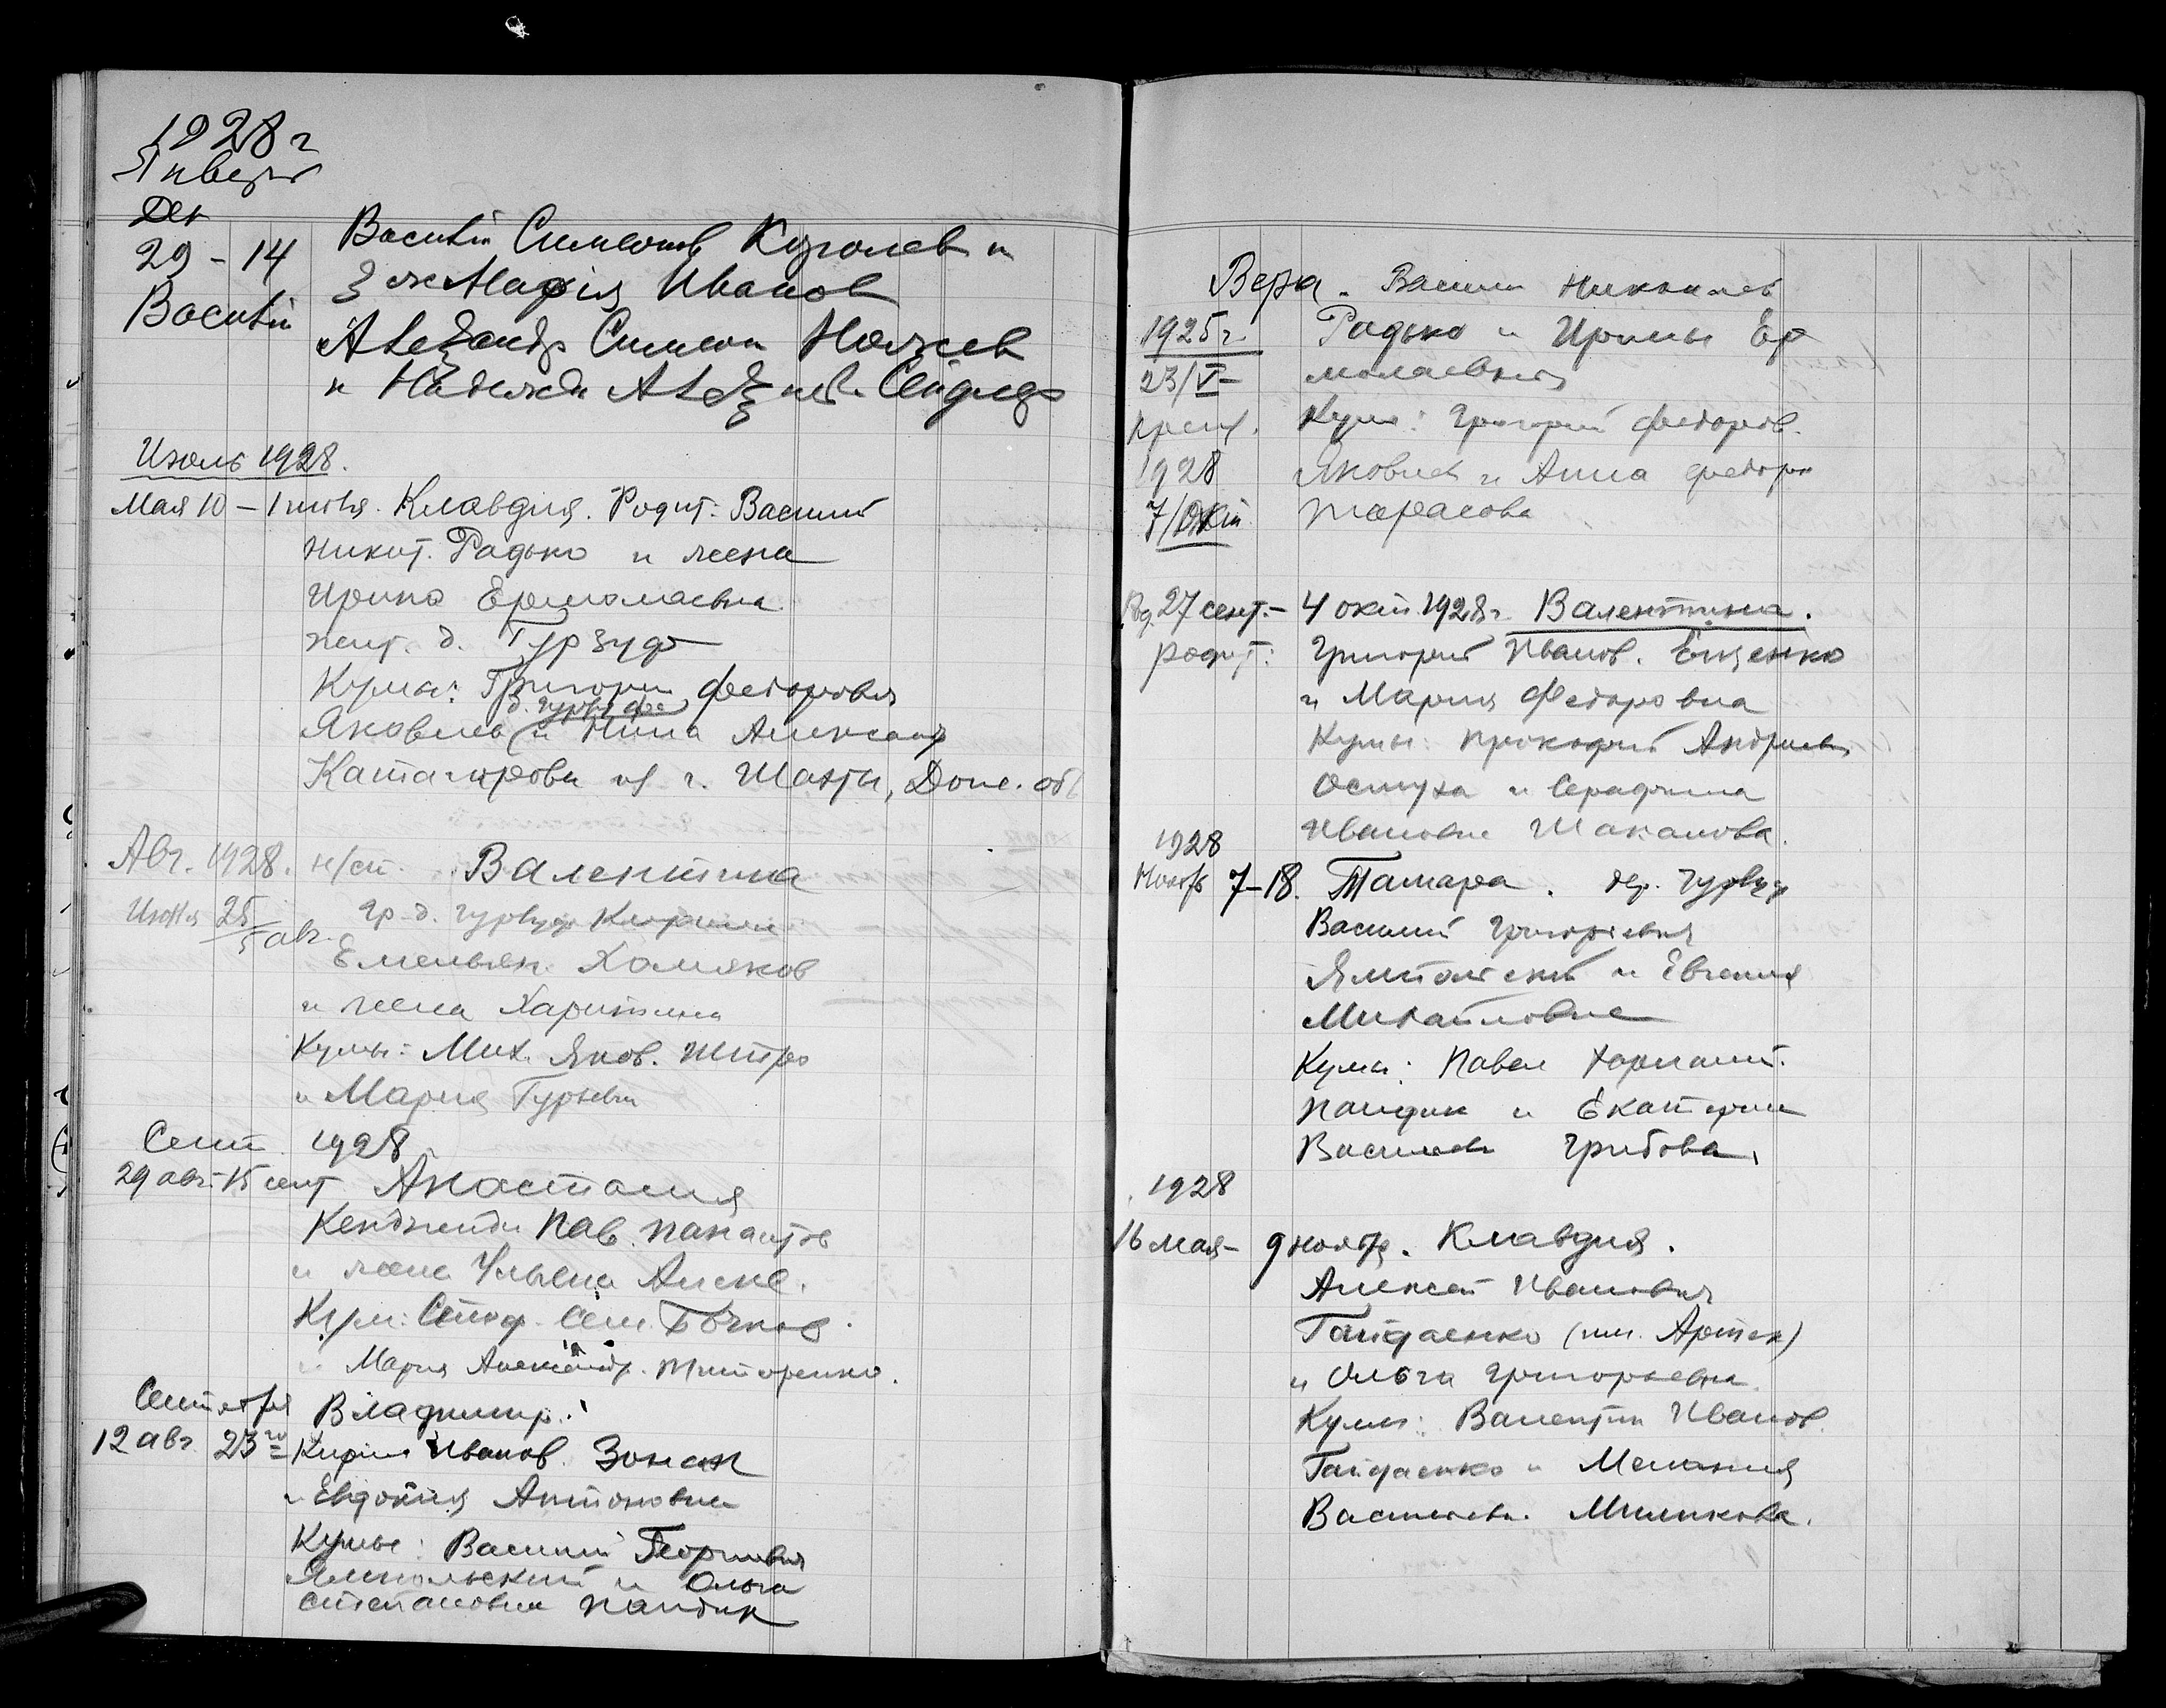 1928 г
Январь
Дек
29 - 14
Василій
Василій Симеонов Королев и
ж Марія Иванов
Александр Симеон
и Надежда
Июль 1928.
Мая 10 – 1 июля. Клавдия. Родит: Василий
Никит. Радько и жена
Ирина Ермолаевна
жит. д. Гурзуф
Кумы: Григорий Федорович
д. Гурзуф
Яковлев и Нина Александр
из г. Шахты, Донс. об
Авг. 1928. н/ст. Валентина
25/5 авг.
гр. д. Гурзуф Кирилл
Емельян. Хомяков
и жена Харитина
Кумы: Мих. Яков.
и Мария Гурьевн
Сент 1928
29 авг - 15 сент Анастасия
Пав.
и жена Ульяна Алекс.
Кум: Сем.
и Мария Александр. Титоренко.
Сентября Владимир.
12 авг. 23го Кирил Иванов.
и Евдокия Антоновна
Кумы: Василий Георгиевич
Ямпольский и Ольга
Степановна Пандик
Вера. Васили
1925 г.
23/V –
крещ.
1928
7/Окт
Радько и Ирины Ер
молаевны
Кумы: Григорий Федоров.
Яковлев и Анна Федоро
Тарасова
Рд. 27 сент. – 4 окт. 1928 г. Валентина.
родит: Григорий Иванов. Ещенко
и Мария Федоровна
Кумы: Прокофий Андреевич
и Серафима
Ивановна Шаханова.
1928
Нояб 7–18. Тамара. дер. Гурзуф
Василий Григорьевич
Ямпольский и Евгения
Михайловна
Кумы: Павел Харламп.
Пандик и Екатерин
Васильев Грибова
1928
16 мая – 9 ноябр. Клавдия.
Алексей Иванович
Гайдаенко (им. Артек)
и Ольга Григорьевна
Кумы: Валентин Иванов.
Гайдаенко и Мелания
Васильевн.